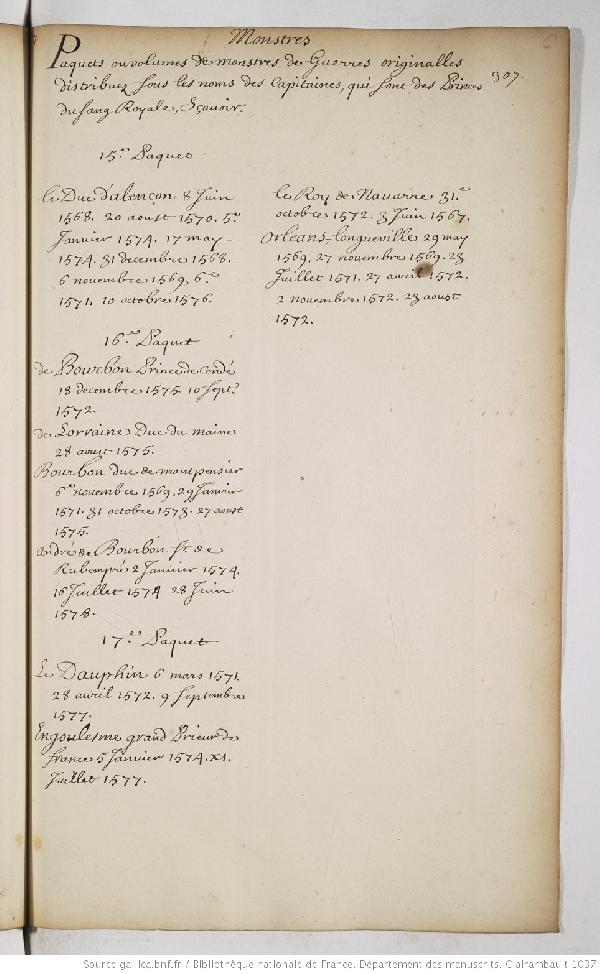 Monstres
Paquets ou volumes de monstres de Guerres originalles
distribuez sous les noms des Capitaines, qui sont des Princes
307.
du sang Royale, Sçavoir.
15.e Paquet
le Duc d'alençon 8 Juin
1568. 20 aoust 1570. 5.e
Janvier 1574. 17 may
1574. 31 decembre 1568.
6 novembre 1569, 6.e
1571. 10 octobre 1576.
le Roy de Navarre 31.e
octobre 1572. 3 Juin 1567.
Orleans-Longueville 29 may
1569. 27 novembre 1569. 23
Juillet 1571. 27 avril 1572.
2 novembre 1572. 23 aoust
1572.
16.e Paquet
de Bourbon Prince de Condé
18 decembre 1575. 10 Sept.e
1572.
de Lorraine Duc du maine
28 aoust 1575.
Bourbon duc de montpensier
6.e novembre 1569. 29 Janvier
1571. 31 octobre 1573. 27 aoust
1575.
André de Bourbon Sr. de
Rubempré 2 Janvier 1574.
16 Juillet 1574 28 Juin
1578.
17.e Paquet
Le Dauphin 6 mars 1571.
28 avril 1572. 9 Septembre
1577.
Engoulesme grand Prieur de
france 5 Janvier 1574. XI.
Juillet 1577.
Source gallica.bnf.fr / Bibliothèque nationale de France. Département des manuscrits. Clairambault 1037